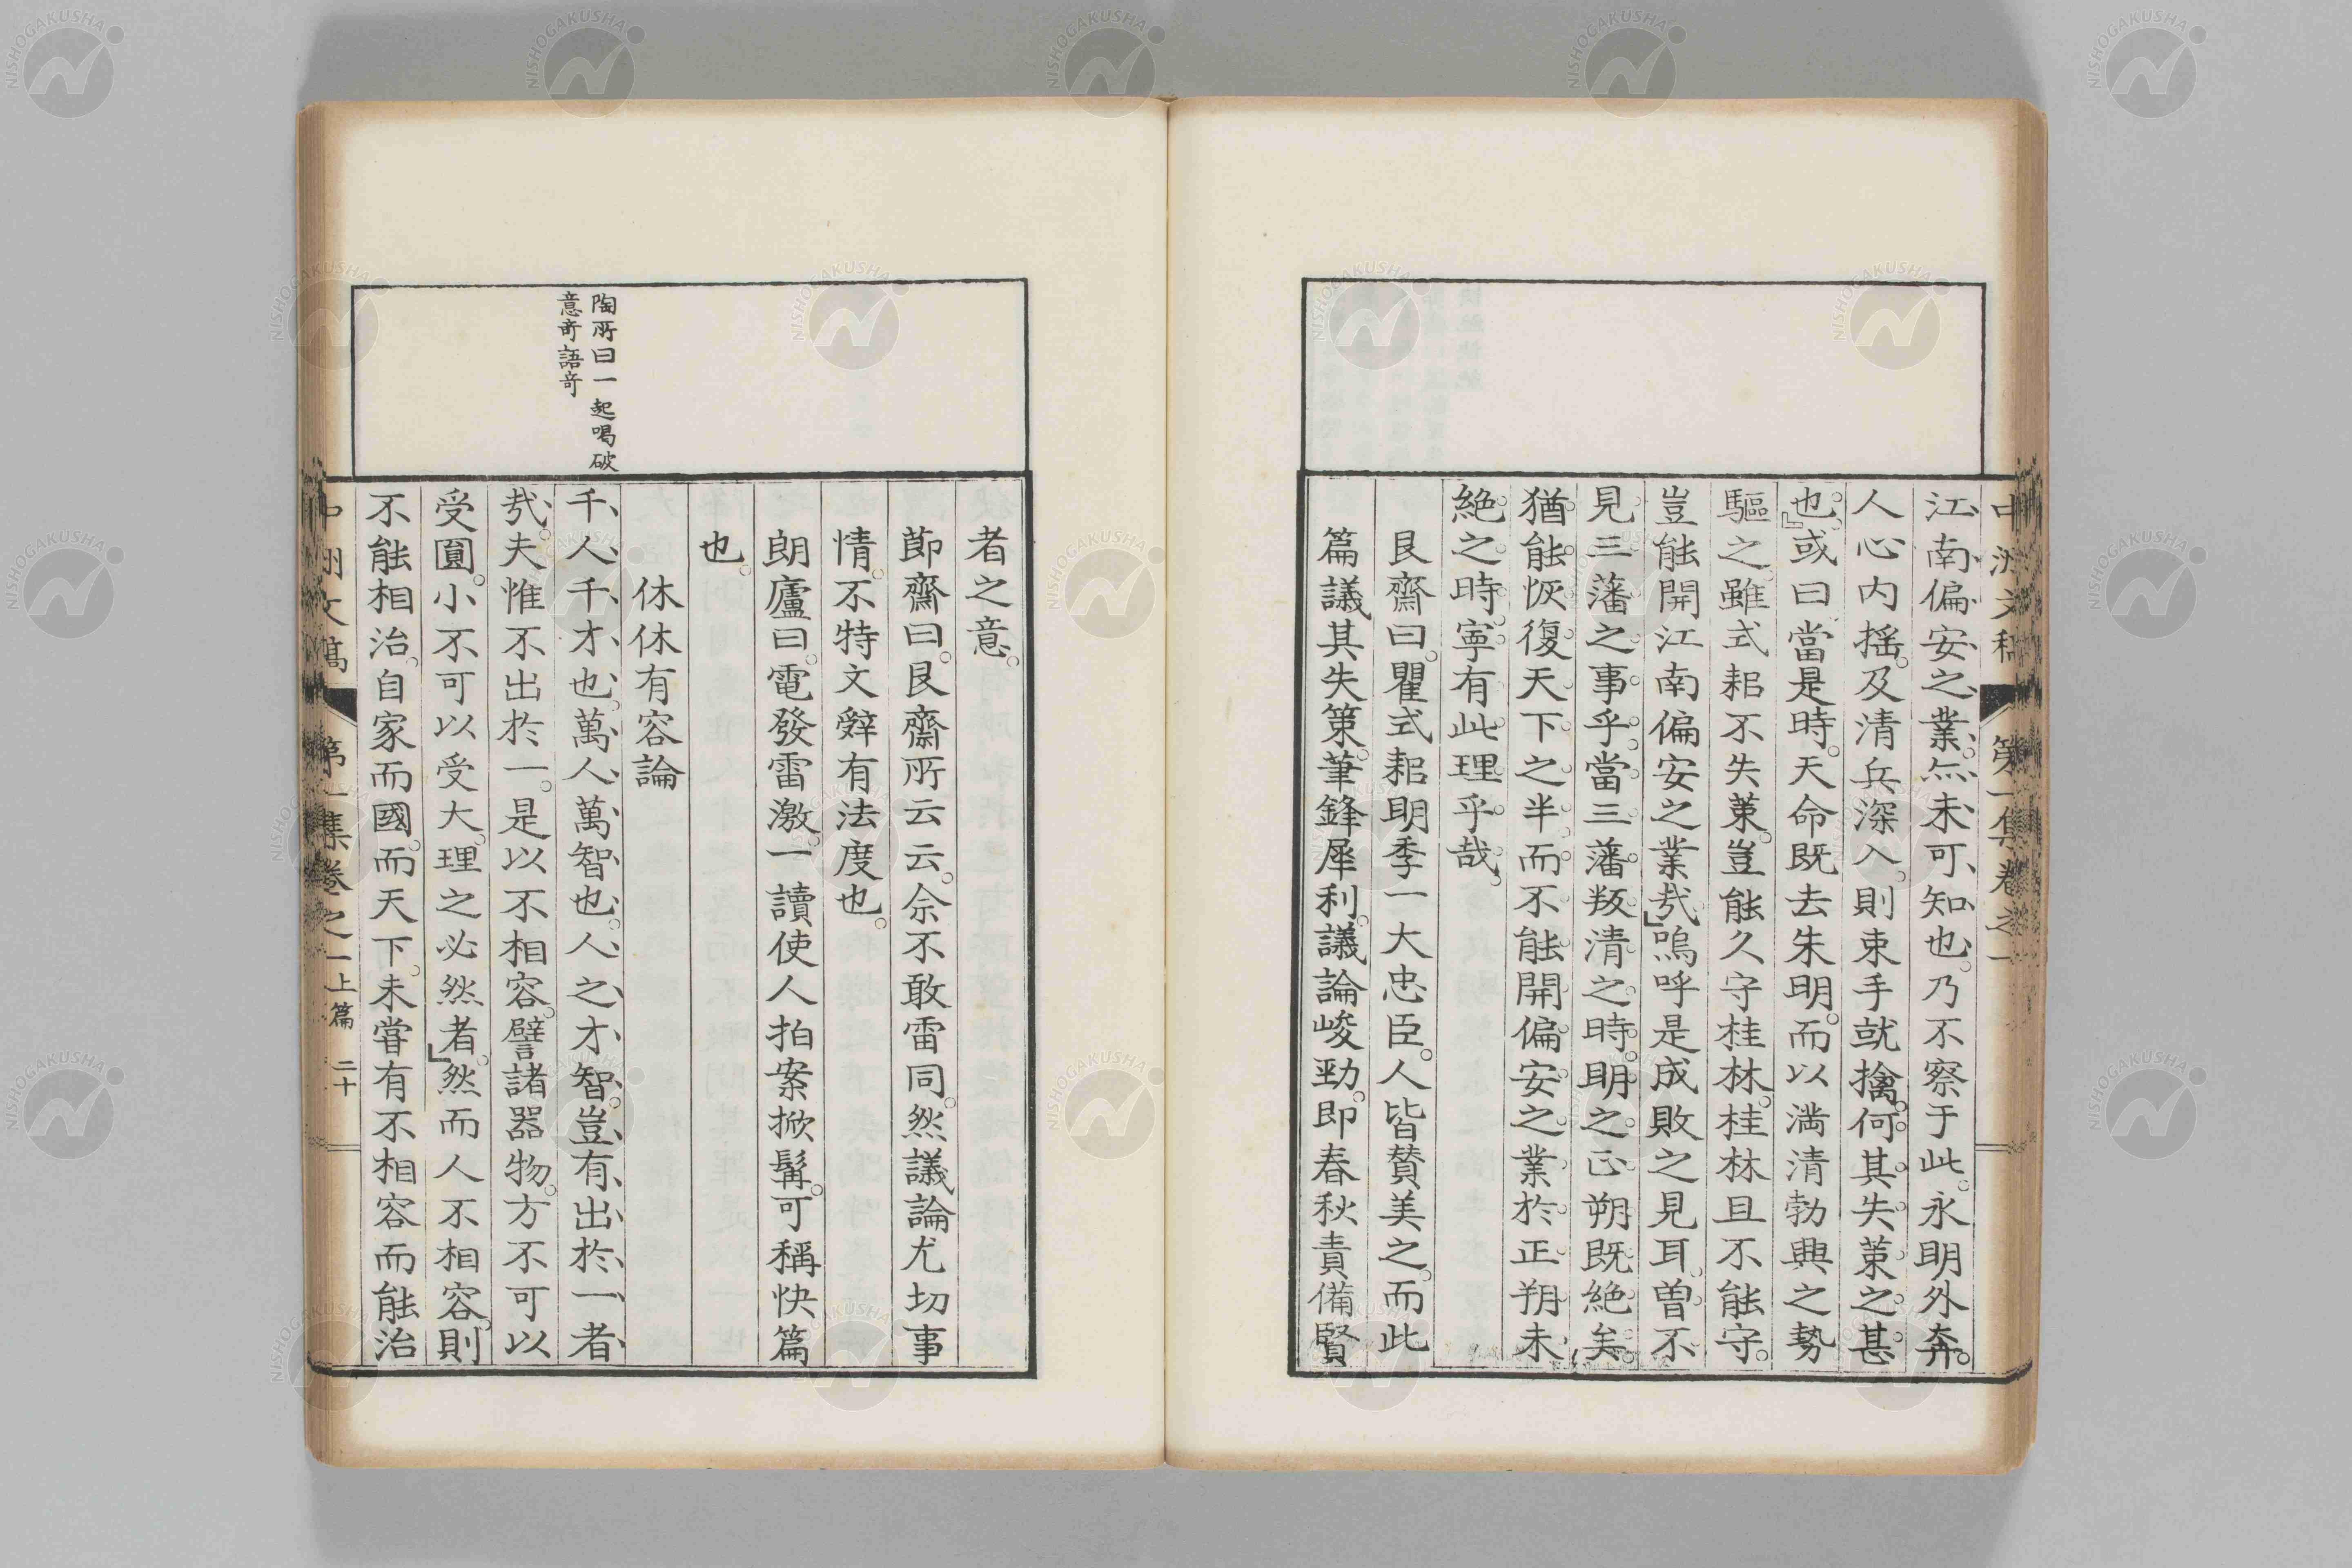 中洲文稿 第一集卷之一
江南偏安之業。亦未可知也。乃不察于此。永明外奔。
人心内搖。及清兵深入。則束手就擒。何其失策之甚
也。』或曰當是時。天命既去朱明。而以満清勃興之勢
驅之。雖式耜不失策。豈能久守桂林。桂林且不能守。
豈能開江南偏安之業哉。』嗚呼是成敗之見耳。曽不
見三藩之事乎。當三藩叛清之時。明之正朔既絶矣。
猶能恢復天下之半。而不能開偏安之業於正朔未
絶之時。寧有此理乎哉。
艮齋曰。瞿式耜明季一大忠臣。人皆賛美之。而此
篇議其失策。筆鋒犀利。議論峻勁。即春秋責備賢
者之意。
節齋曰。艮齋所云云。余不敢雷同。然議論尤切事
情。不特文辭有法度也。
朗廬曰。電發雷激。一讀使人拍案掀髯。可稱快篇
也。
休休有容論
陶所曰一起喝破
意奇語奇
千人千才也。萬人萬智也。人之才智。豈有出於一者
哉。夫惟不出於一。是以不相容。譬諸器物。方不可以
受圓。小不可以受大。理之必然者。』然而人不相容。則
不能相治。自家而國。而天下。未嘗有不相容而能治
中洲文稿 第一集卷之一上篇 二十
NISHOGAKUSHA